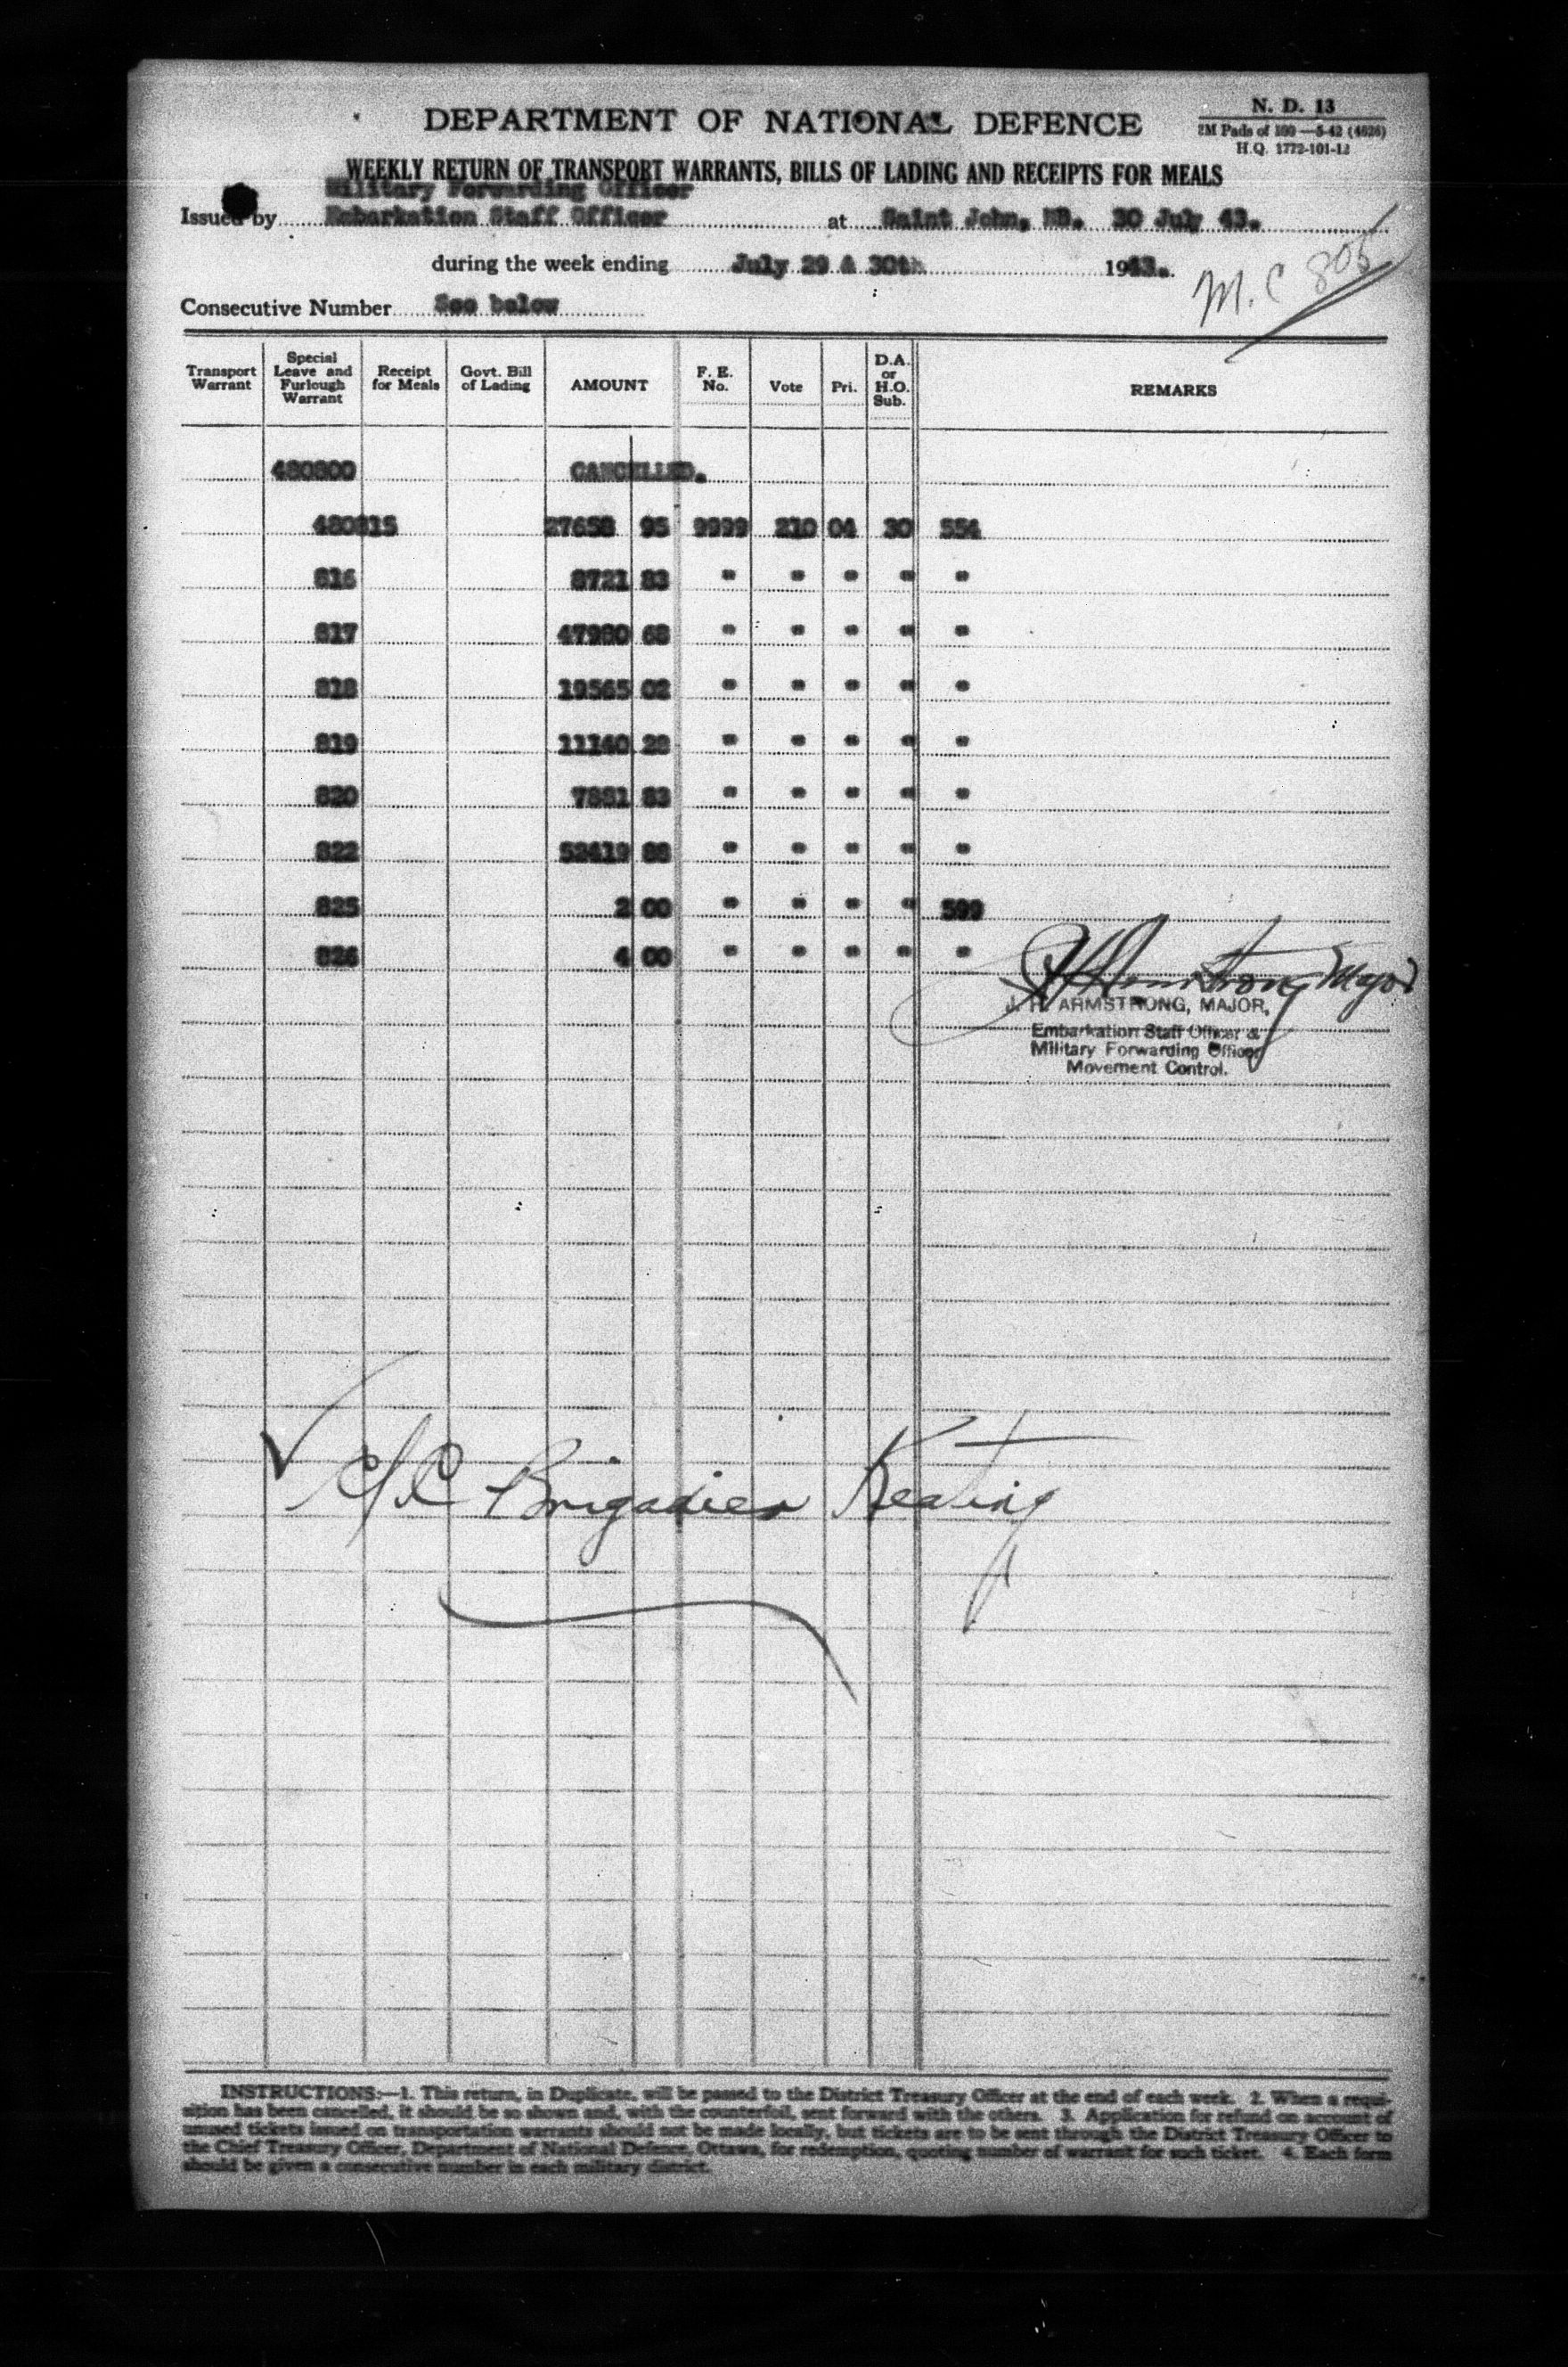 N. D. 13
DEPARTMENT OF NATIONAL DEFENCE
2M Pads of 100—5-42 (4626)
H.Q. 1772-101-12
WEEKLY RETURN OF TRANSPORT WARRANTS, BILLS OF LADING AND RECEIPTS FOR MEALS
Military Forwarding Officer
Issued by Embarkation Staff Officer at Saint John, NB. 30 July 43.
during the week ending July 29 & 30th 1943.
M.C 805
Consecutive Number See below
Transport Warrant Special Leave and Furlough Warrant Receipt for Meals Govt. Bill of Lading AMOUNT F. E. No. Vote Pri. D.A. or H.O. Sub. REMARKS
480800 CANCELLED.
480815 27658 95 9999 210 04 30 554
816 8721 83 " " " " "
817 47980 68 " " " " "
818 19565 02 " " " " "
819 11140 28 " " " " "
820 7881 83 " " " " "
822 52419 88 " " " " "
825 2 00 " " " " 599
826 4 00 " " " " "
J H Armstrong Major
J. H. ARMSTRONG, MAJOR,
Embarkation Staff Officer &
Military Forwarding Officer
Movement Control.
Brigadier Keating
INSTRUCTIONS:—1. This return, in Duplicate, will be passed to the District Treasury Officer at the end of each week. 2. When a requi-
sition has been cancelled, it should be so shown and, with the counterfoil, sent forward with the others. 3. Application for refund on account of
unused tickets issued on transportation warrants should not be made locally, but tickets are to be sent through the District Treasury Officer to
the Chief Treasury Officer, Department of National Defence, Ottawa, for redemption, quoting number of warrant for such ticket. 4. Each form
should be given a consecutive number in each military district.